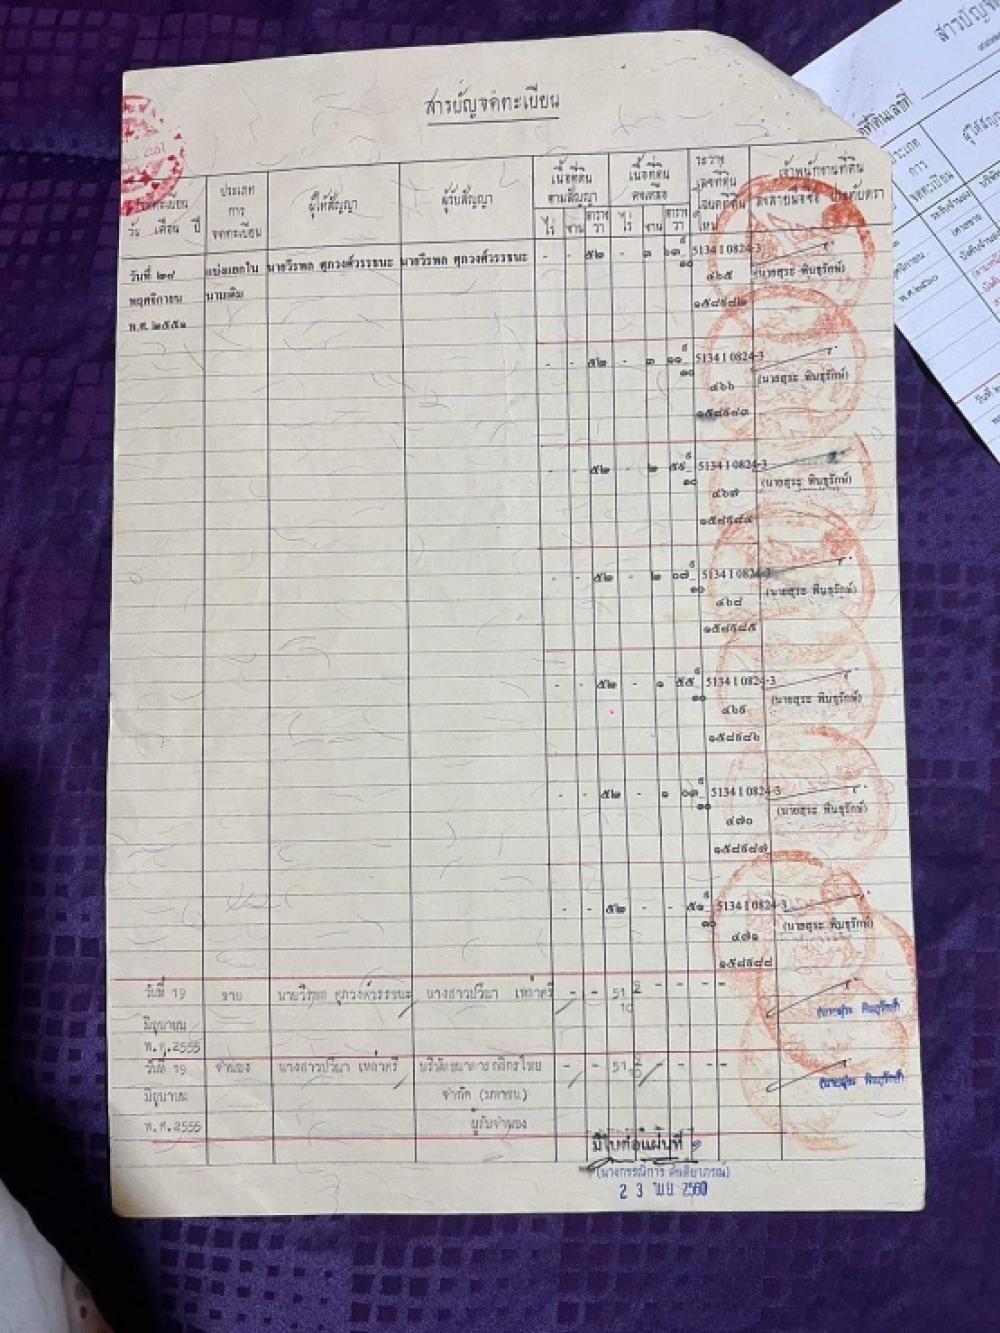 สารบัญจดทะเบียน
จดทะเบียน
วัน เดือน ปี
ประเภท
การ
จดทะเบียน
ผู้ให้สัญญา
ผู้รับสัญญา
เนื้อที่ดิน
ตามสัญญา
ไร่ งาน ตาราง
วา
เนื้อที่ดิน
คงเหลือ
ไร่ งาน ตาราง
วา
ระวาง
เลขที่ดิน
โฉนดที่ดิน
ใหม่
เจ้าพนักงานที่ดิน
ลงลายมือชื่อ ประทับตรา
วันที่ ๒๗ แบ่งแยกใน นายวีรพล ศุภวงศ์วรรธนะ นายวีรพล ศุภวงศ์วรรธนะ - - ๕๒ - ๓ ๖๓ 5134 I 0824-3
พฤศจิกายน นามเดิม ๔๖๕ (นายสุระ พินธุรักษ์)
พ.ศ. ๒๕๕๑ ๑๕๘๙๘๒
- - ๕๒ - ๓ ๑๑ 5134 I 0824-3
๔๖๖ (นายสุระ พินธุรักษ์)
๑๕๘๙๘๓
- - ๕๒ - ๒ ๕๙ 5134 I 0824-3
๔๖๗ (นายสุระ พินธุรักษ์)
๑๕๘๙๘๔
- - ๕๒ - ๒ ๐๗ 5134 I 0824-3
๔๖๘ (นายสุระ พินธุรักษ์)
๑๕๘๙๘๕
- - ๕๒ - ๑ ๕๕ 5134 I 0824-3
๔๖๙ (นายสุระ พินธุรักษ์)
๑๕๘๙๘๖
- - ๕๒ - ๑ ๐๓ 5134 I 0824-3
๔๗๐ (นายสุระ พินธุรักษ์)
๑๕๘๙๘๗
- - ๕๒ - - ๕๑ 5134 I 0824-3
๔๗๑ (นายสุระ พินธุรักษ์)
๑๕๘๙๘๘
วันที่ 19 ขาย นายวีรพล ศุภวงศ์วรรธนะ นางสาวปวีณา เหล่าศรี - - 51 - - -
มิถุนายน (นายสุระ พินธุรักษ์)
พ.ศ.2555
วันที่ 19 จำนอง นางสาวปวีณา เหล่าศรี บริษัทธนาคารกสิกรไทย - - 51 - - -
มิถุนายน จำกัด (มหาชน) (นายสุระ พินธุรักษ์)
พ.ศ.2555 ผู้รับจำนอง
มีใบต่อแผ่นที่ ๑
2 3 พ.ย. 2560
สารบัญจด
ที่ดินเลขที่
ประเภท
การ
จดทะเบียน
ผู้ให้สัญ
พ.ศ. ๒๕๖๐